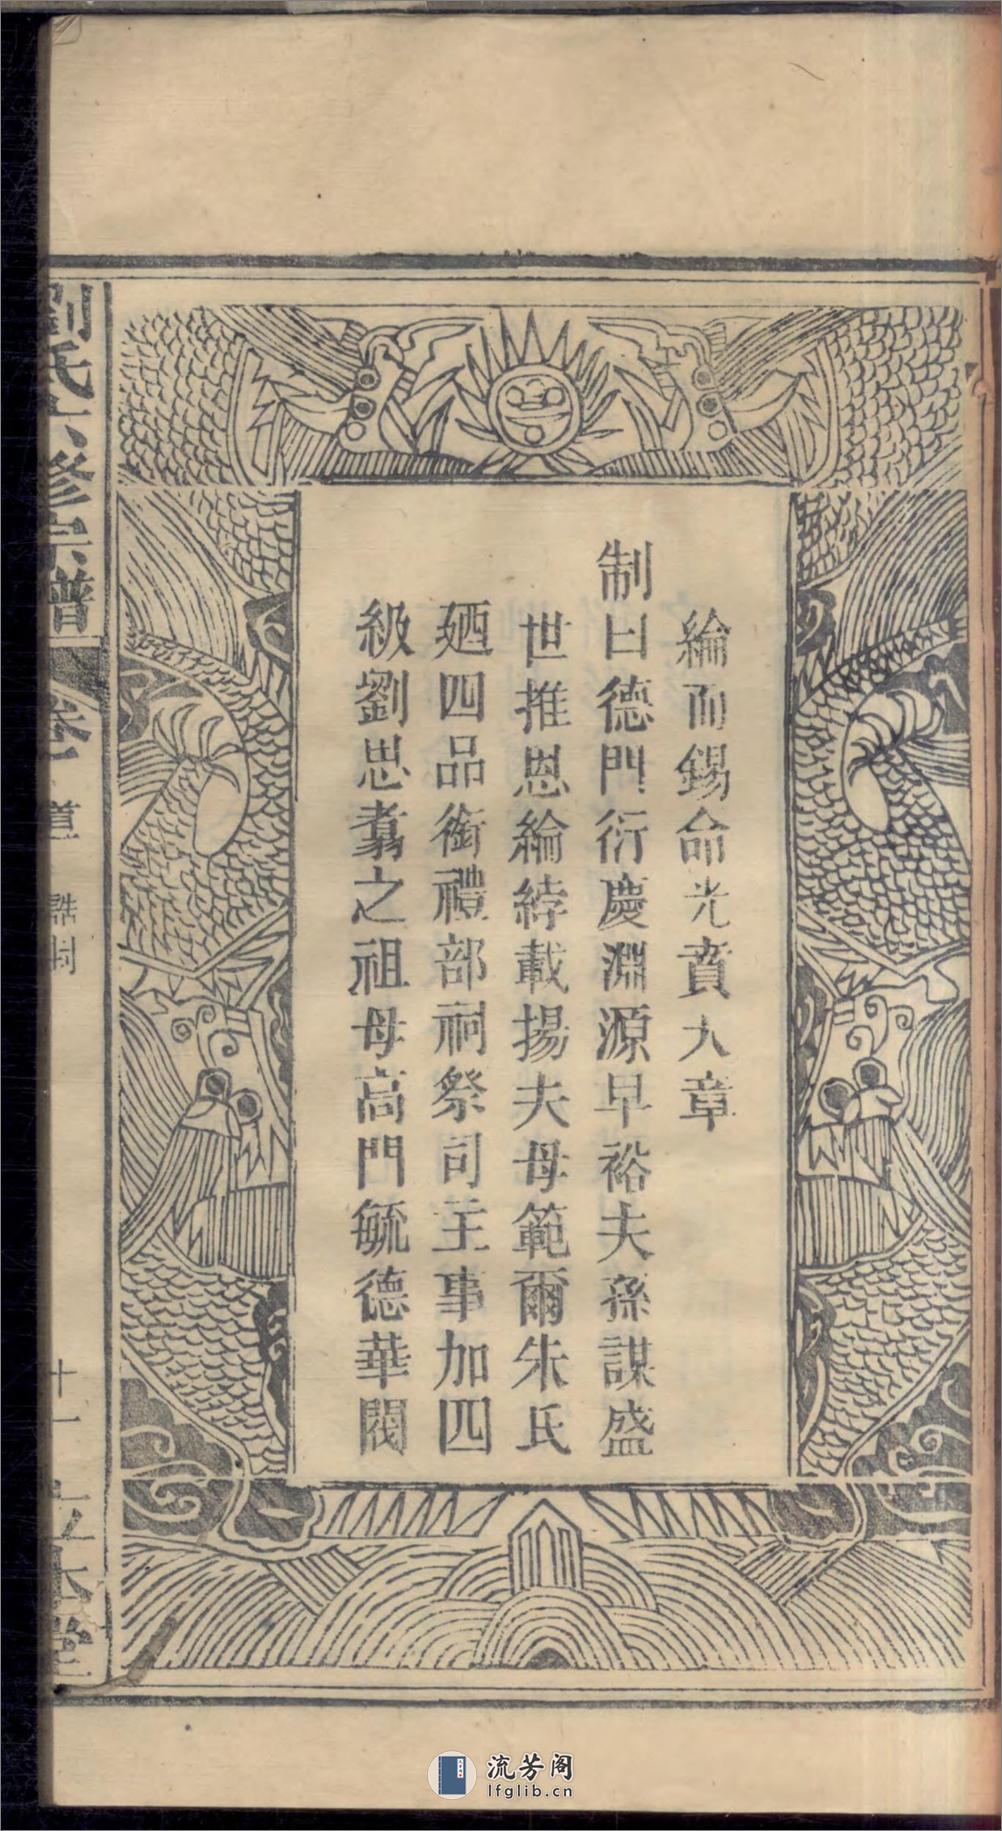 綸而錫命光賁大章
制曰德門衍慶淵源早裕夫孫謀盛
世推恩綸綍載揚夫母範爾朱氏
廼四品銜禮部祠祭司主事加四
級劉思騫之祖母高門毓德華閥
劉氏六修宗譜
卷
誥封
十一
流芳阁
lfglib.cn